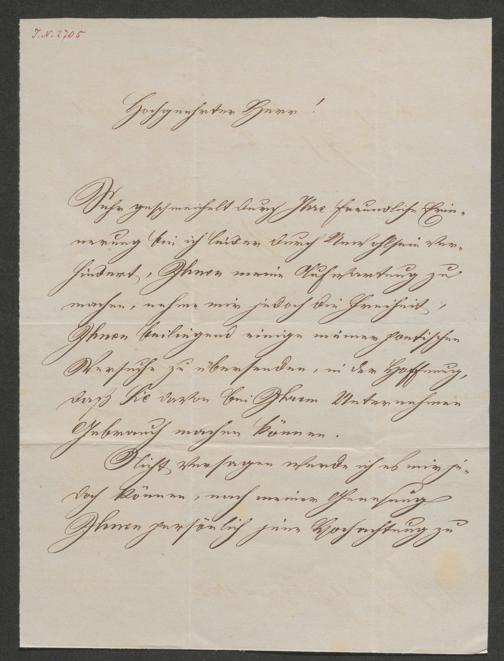 I.N. 2705
Hochgeehrter Herr!
Sehr geschmeichelt durch Ihre freundliche Erin-
nerung bin ich leider durch Unwohlsein ver-
hindert, Ihnen meine Aufwartung zu
machen, nehme mir jedoch die Freiheit,
Ihnen beiliegend einige meiner poetischen
Versuche zu übersenden, in der Hoffnung,
daß Sie davon bei Ihrem Unternehmen
Gebrauch machen können.
Nicht versagen werde ich es mir je-
doch können, nach meiner Genesung
Ihnen persönlich jene Hochachtung zu